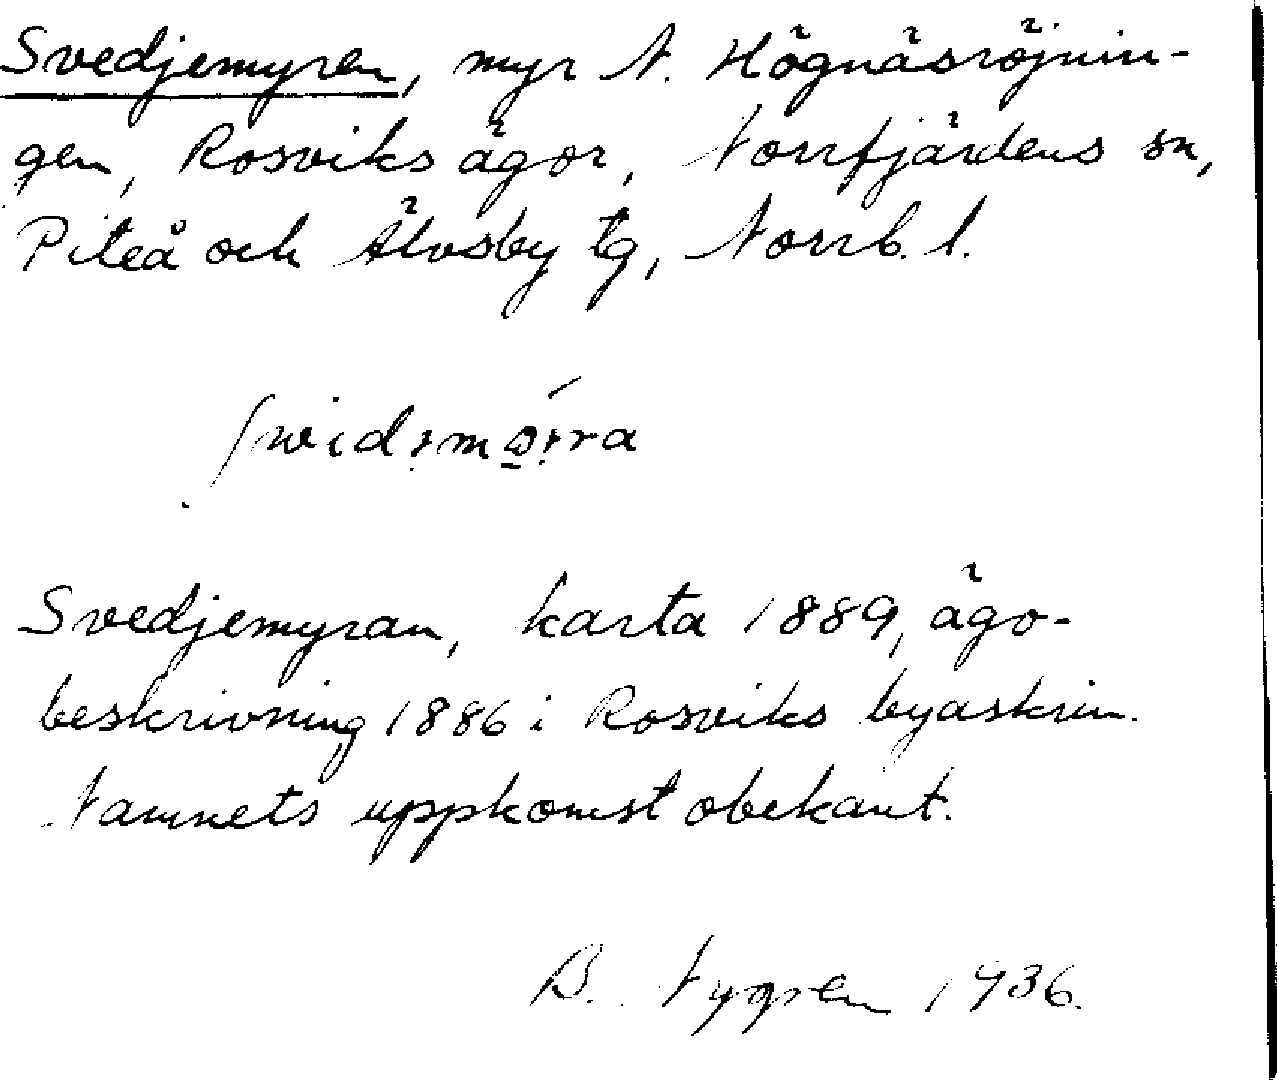 Svedjemyren, myr N. Högnäsröjnin-
gen, Rosviks ägor, Norrfjärdens sn,
Piteå och Älvsby tg, Norrb. l.
Svedjemyran, karta 1889, ägo-
beskrivning 1886 i Rosviks byaskrin.
Namnets uppkomst obekant.
B. Nygren 1936.